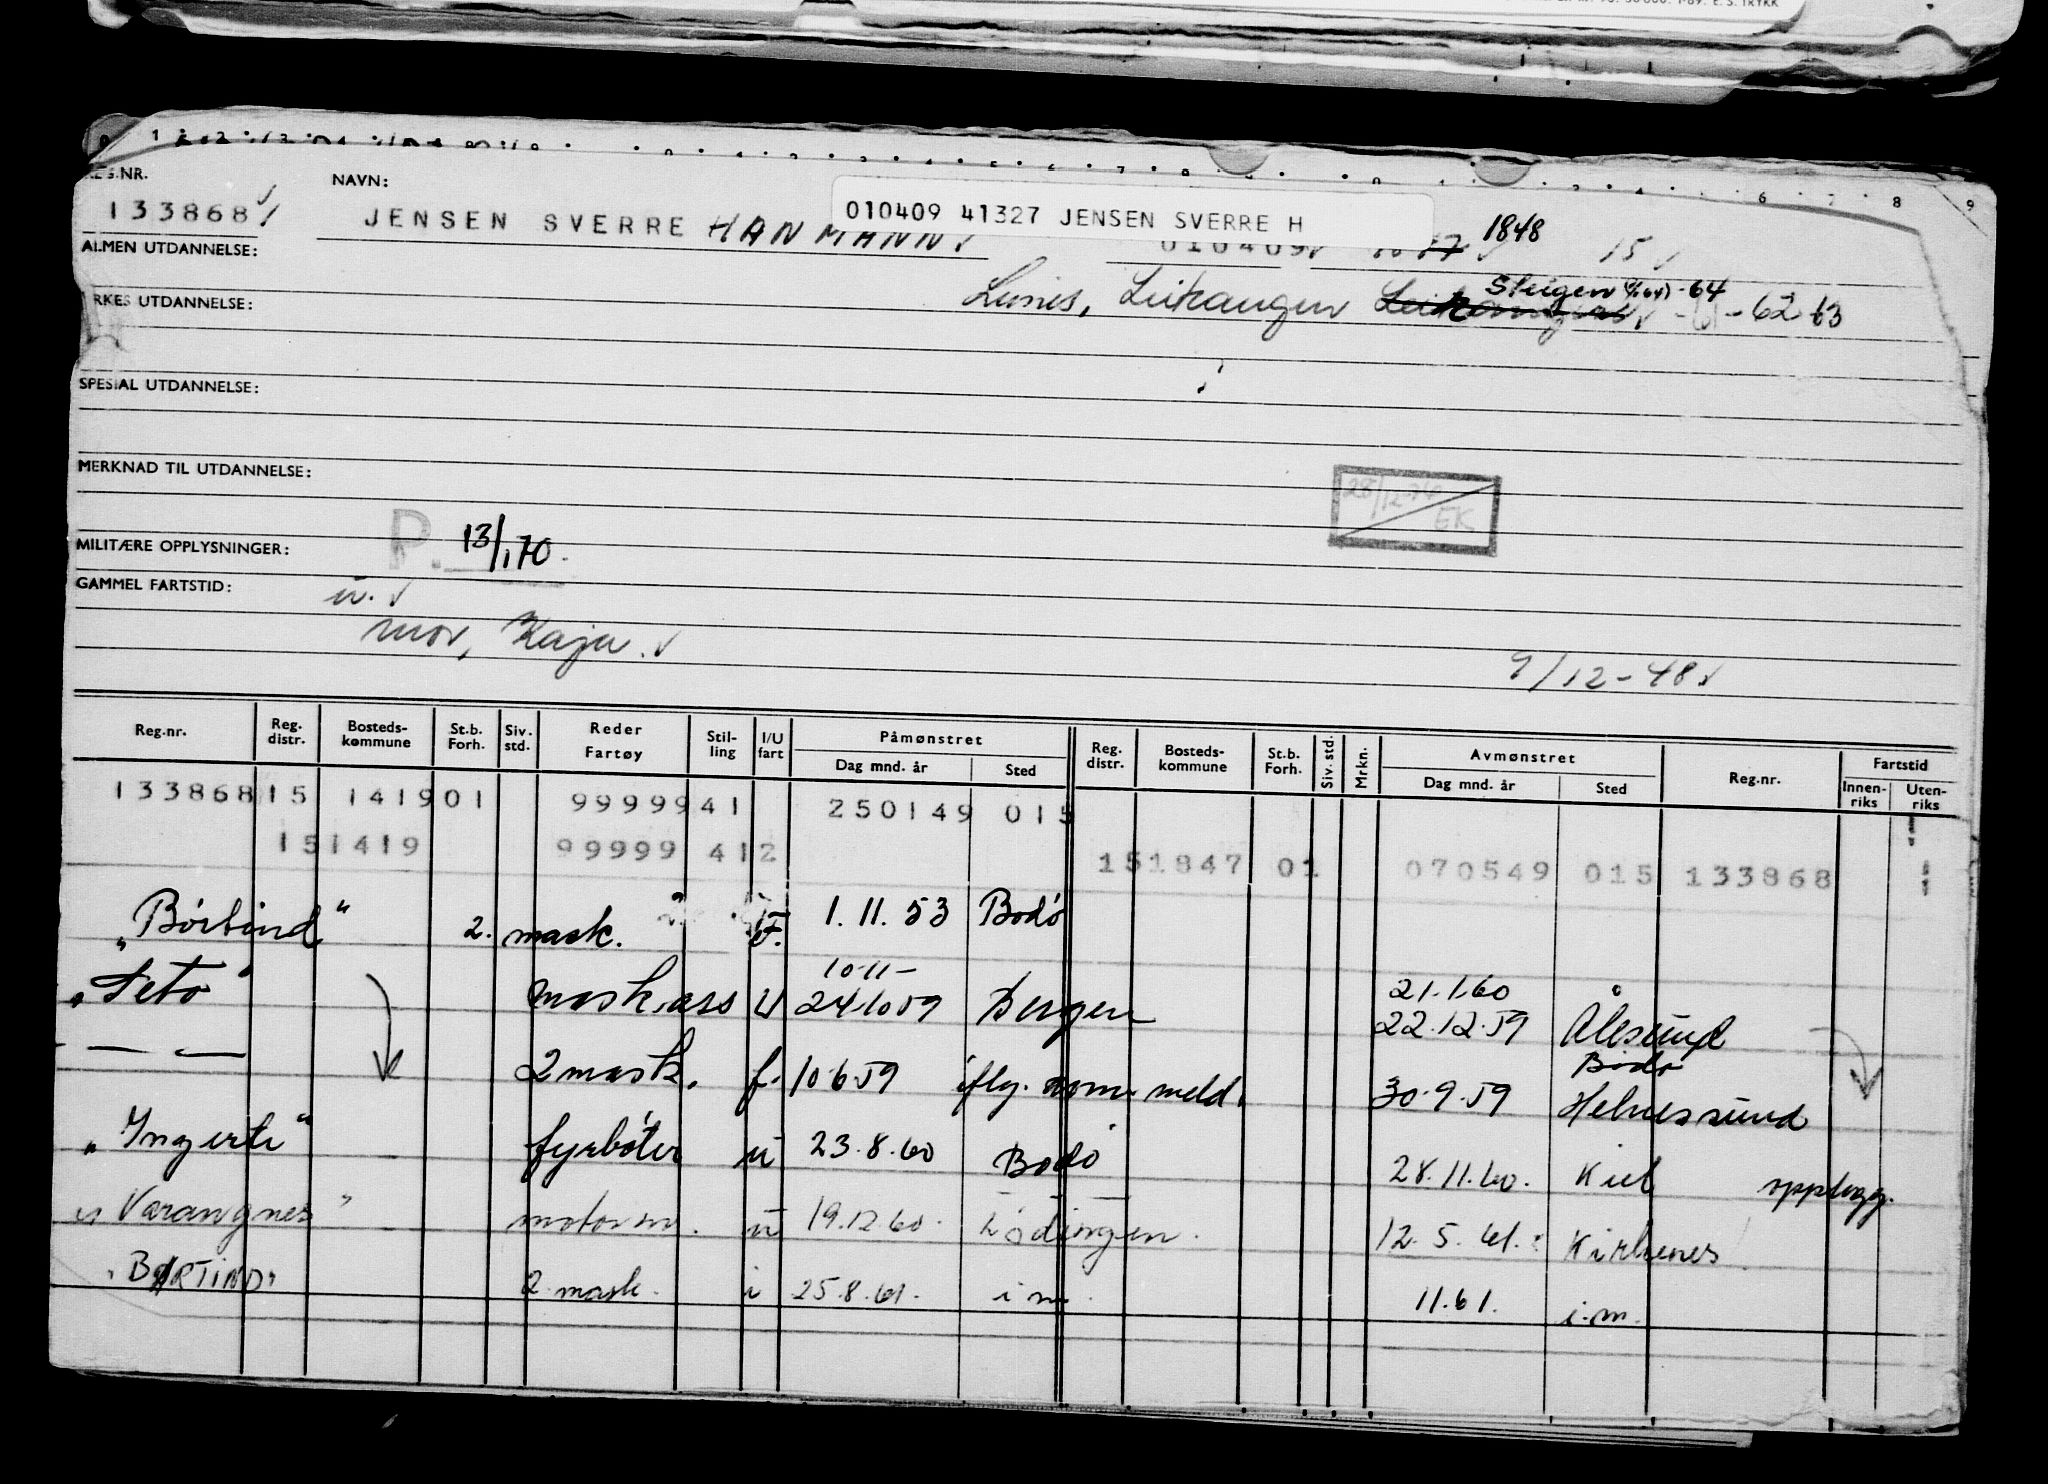 REG.NR.
NAVN:
133868
JENSEN SVERRE HANMANN
010409 41327 JENSEN SVERRE H
010409
1848
15
ALMEN UTDANNELSE:
Leines, Leikangen
Steigen
-64
-62 63
YRKES UTDANNELSE:
SPESIAL UTDANNELSE:
MERKNAD TIL UTDANNELSE:
EK
MILITÆRE OPPLYSNINGER:
P. 13/1 70.
GAMMEL FARTSTID:
u.
mor, Kaja.
9/12-48
Reg.nr.
Reg. distr.
Bosteds-kommune
St.b. Forh.
Siv. std.
Reder Fartøy
Stil-ling
I/U fart
Påmønstret
Dag mnd. år
Sted
Reg. distr.
Bosteds-kommune
St.b. Forh.
Siv. std.
Mrkn.
Avmønstret
Dag mnd. år
Sted
Reg.nr.
Fartstid
Innen-riks
Uten-riks
133868 15 1419 01 99999 41 250149 015
151419 99999 412 151847 01 070549 015 133868
"Børtind" 2. mask. 1.11.53 Bodø
10-11- 21.1.60
"Seto" mask.ass U 24.10.59 Bergen 22.12.59 Ålesund
Bodø
— — 2 mask. f. 10.6.59 iflg. meld. 30.9.59 Helnessund
"Ingerte" fyrbøter u 23.8.60 Bodø 28.11.60. Kiel opplegg.
"Varangnes" motorm. u 19.12.60. Lødingen. 12.5.61. Kirkenes
"BØRTIND" 2. mask. i 25.8.61. i m. 11.61. i.m.